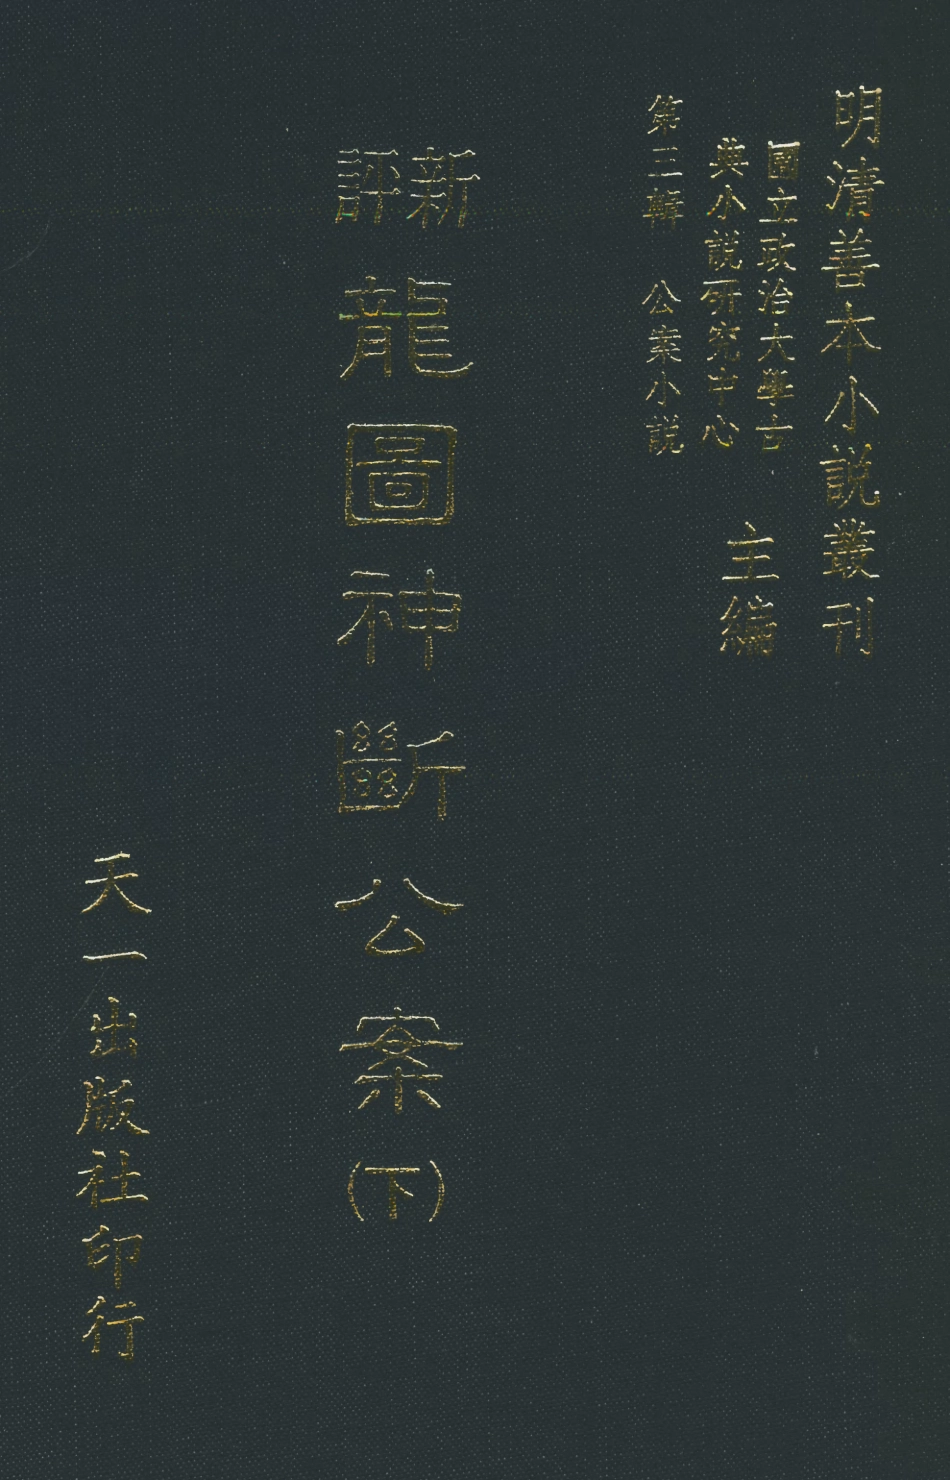 明清善本小説叢刊
國立政治大學古
典小說硏究中心
主編
第三輯 公案小說
新評
龍圖神斷公案(下)
天一出版社印行